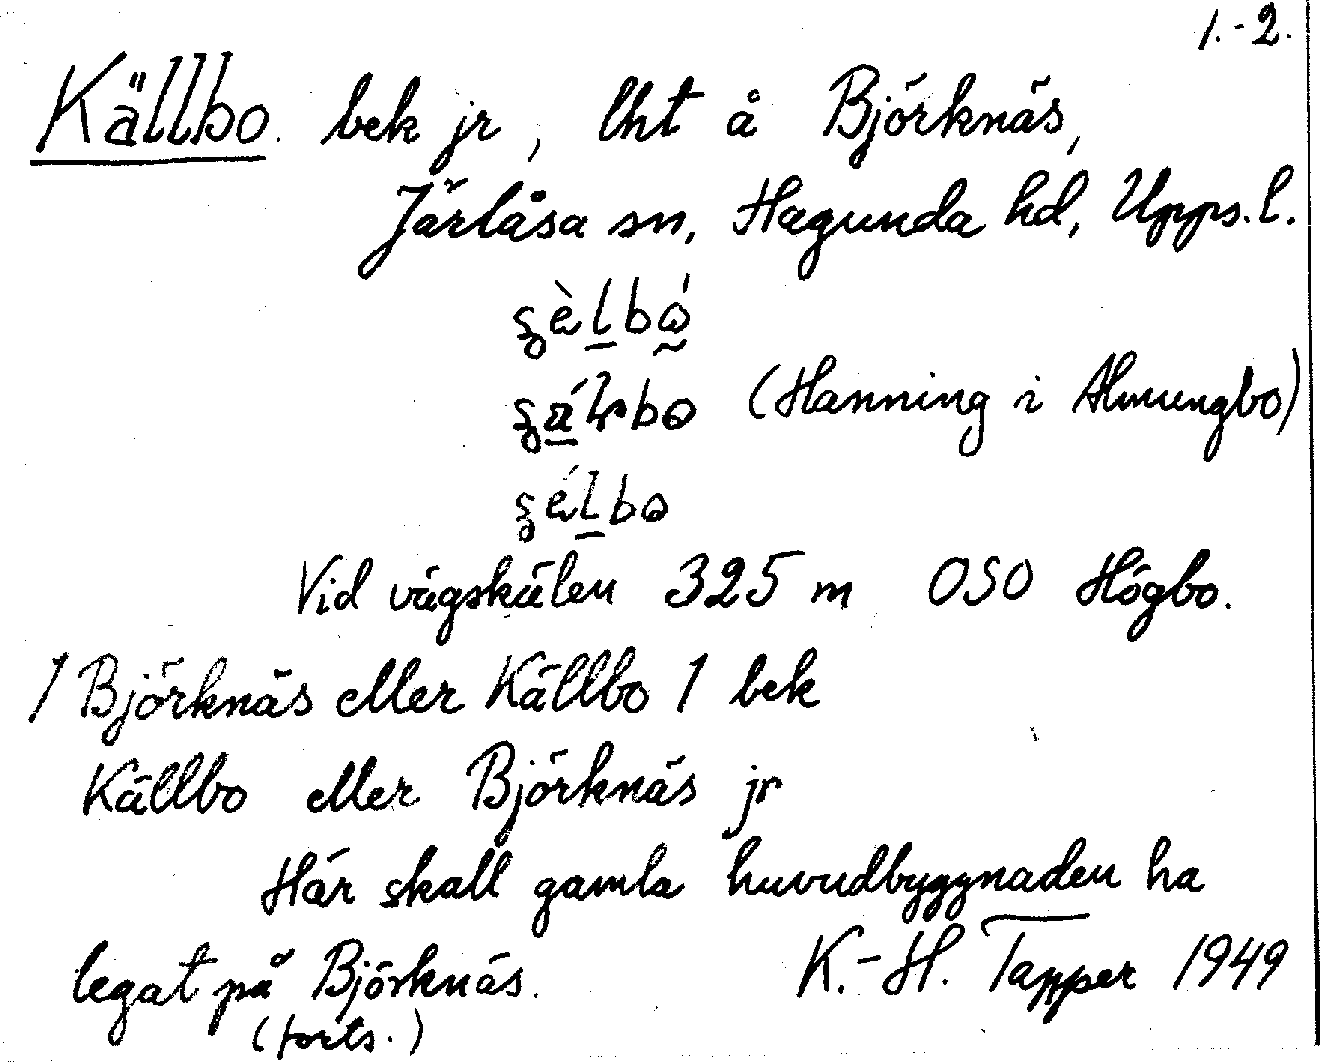 1.-2.
Källbo. bek jr, lht å Björknäs,
Järlåsa sn, Hagunda hd, Upps.l.
(Hanning i Almungbo)
Vid vägskälen 325 m OSO Högbo.
/ Björknäs eller Källbo / bek
Källbo eller Björknäs jr
Här skall gamla huvudbyggnaden ha
legat på Björknäs. K.-H. Tapper 1949
(forts.)